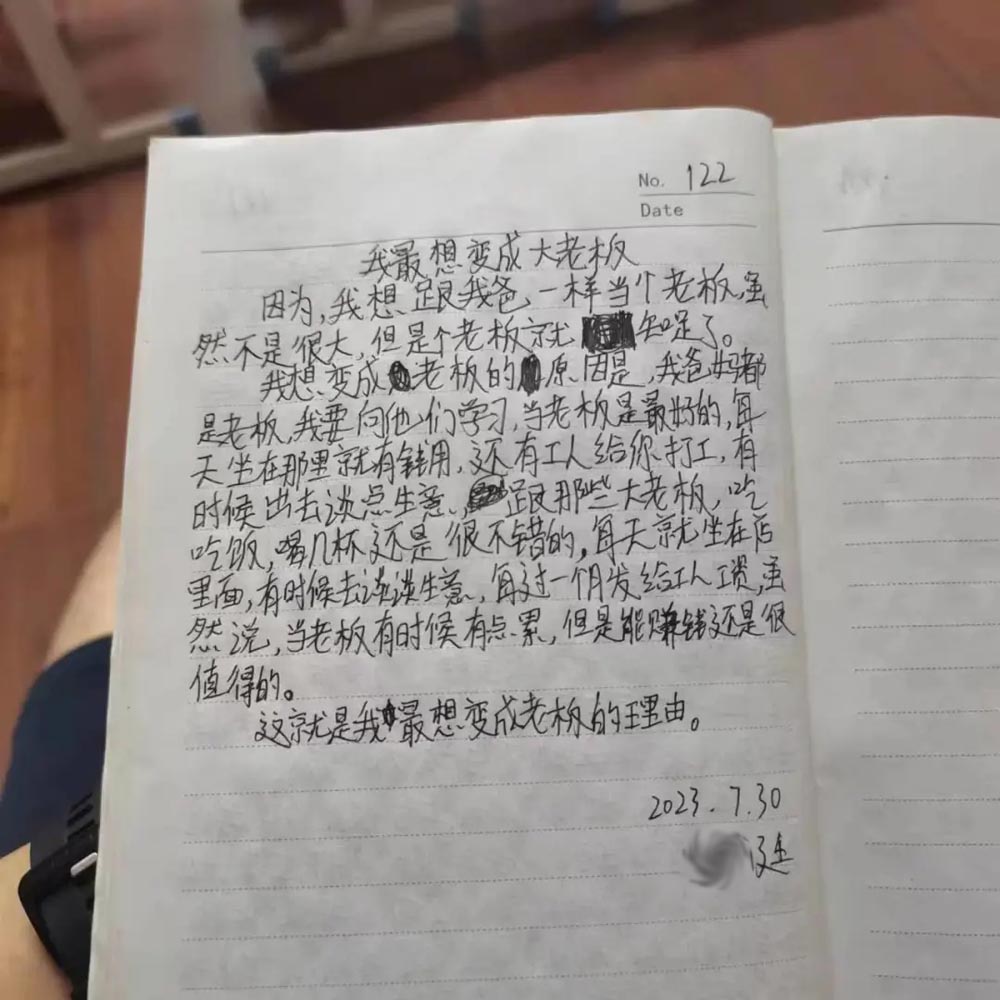 No. 122
Date
我最想变成大老板
因为,我想跟我爸,一样当个老板,虽
然不是很大,但是个老板就知足了。
我想变成老板的原因是,我爸妈都
是老板,我要向他们学习,当老板是最好的,每
天坐在那里就有钱用,还有工人给你打工,有
时候出去谈点生意,跟那些大老板,吃
吃饭,喝几杯还是很不错的,每天就坐在店
里面,有时候去谈谈生意,每过一个月发给工人工资,虽
然说,当老板有时候有点累,但是能赚钱还是很
值得的。
这就是我最想变成老板的理由。
2023.7.30